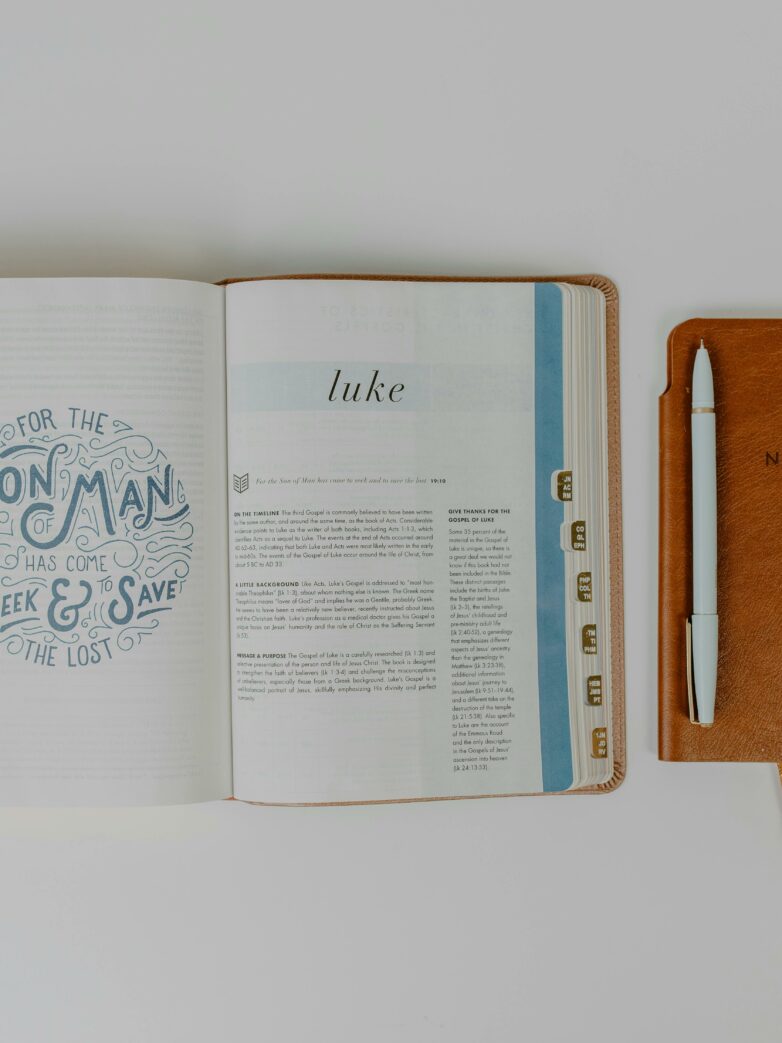 FOR THE
ON MAN
OF
HAS COME
EEK & TO SAVE
THE LOST
luke
For the Son of Man has come to seek and to save the lost 19:10
ON THE TIMELINE The third Gospel is commonly believed to have been written
by the same author, and around the same time, as the book of Acts. Considerable
evidence points to Luke as the writer of both books, including Acts 1:1-3, which
identifies Acts as a sequel to Luke. The events at the end of Acts occurred around
AD 62-63, indicating that both Luke and Acts were most likely written in the early
to mid-60s. The events of the Gospel of Luke occur around the life of Christ, from
about 5 BC to AD 33.
A LITTLE BACKGROUND Like Acts, Luke's Gospel is addressed to "most hon-
orable Theophilus" (Lk 1:3), about whom nothing else is known. The Greek name
Theophilus means "lover of God" and implies he was a Gentile, probably Greek.
He seems to have been a relatively new believer, recently instructed about Jesus
and the Christian faith. Luke's profession as a medical doctor gives his Gospel a
unique focus on Jesus' humanity and the role of Christ as the Suffering Servant
MESSAGE & PURPOSE The Gospel of Luke is a carefully researched (Lk 1:3) and
selective presentation of the person and life of Jesus Christ. The book is designed
to strengthen the faith of believers (Lk 1:3-4) and challenge the misconceptions
of unbelievers, especially those from a Greek background. Luke's Gospel is a
well-balanced portrait of Jesus, skillfully emphasizing His divinity and perfect
humanity.
GIVE THANKS FOR THE
GOSPEL OF LUKE
Some 35 percent of the
material in the Gospel of
Luke is unique, so there is
a great deal we would not
know if this book had not
been included in the Bible.
These distinct passages
include the births of John
the Baptist and Jesus
(Lk 2-3), the retellings
of Jesus' childhood and
pre-ministry adult life
(Lk 2:40-52), a genealogy
that emphasizes different
aspects of Jesus' ancestry
than the genealogy in
Matthew (Lk 3:23-38),
additional information
about Jesus' journey to
Jerusalem (Lk 9:51-19:44),
and a different take on the
destruction of the temple
(Lk 21:5-38). Also specific
to Luke are the account
of the Emmaus Road
and the only description
in the Gospels of Jesus'
ascension into heaven
(Lk 24:13-53).
JN
AC
RM
CO
GL
EPH
PHP
COL
TH
TM
TI
PHM
HEB
JMS
PT
1JN
JD
RV
N